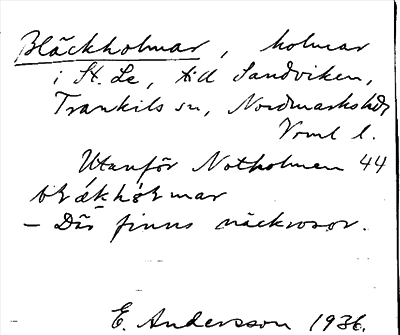 Bläckholmar, holmar
i St. Le, tid Sandviken,
Trankils sn, Nordmarks hd,
Vrml l.
Utanför Notholmen 44
- Där finns näckrosor.
E. Andersson 1936.